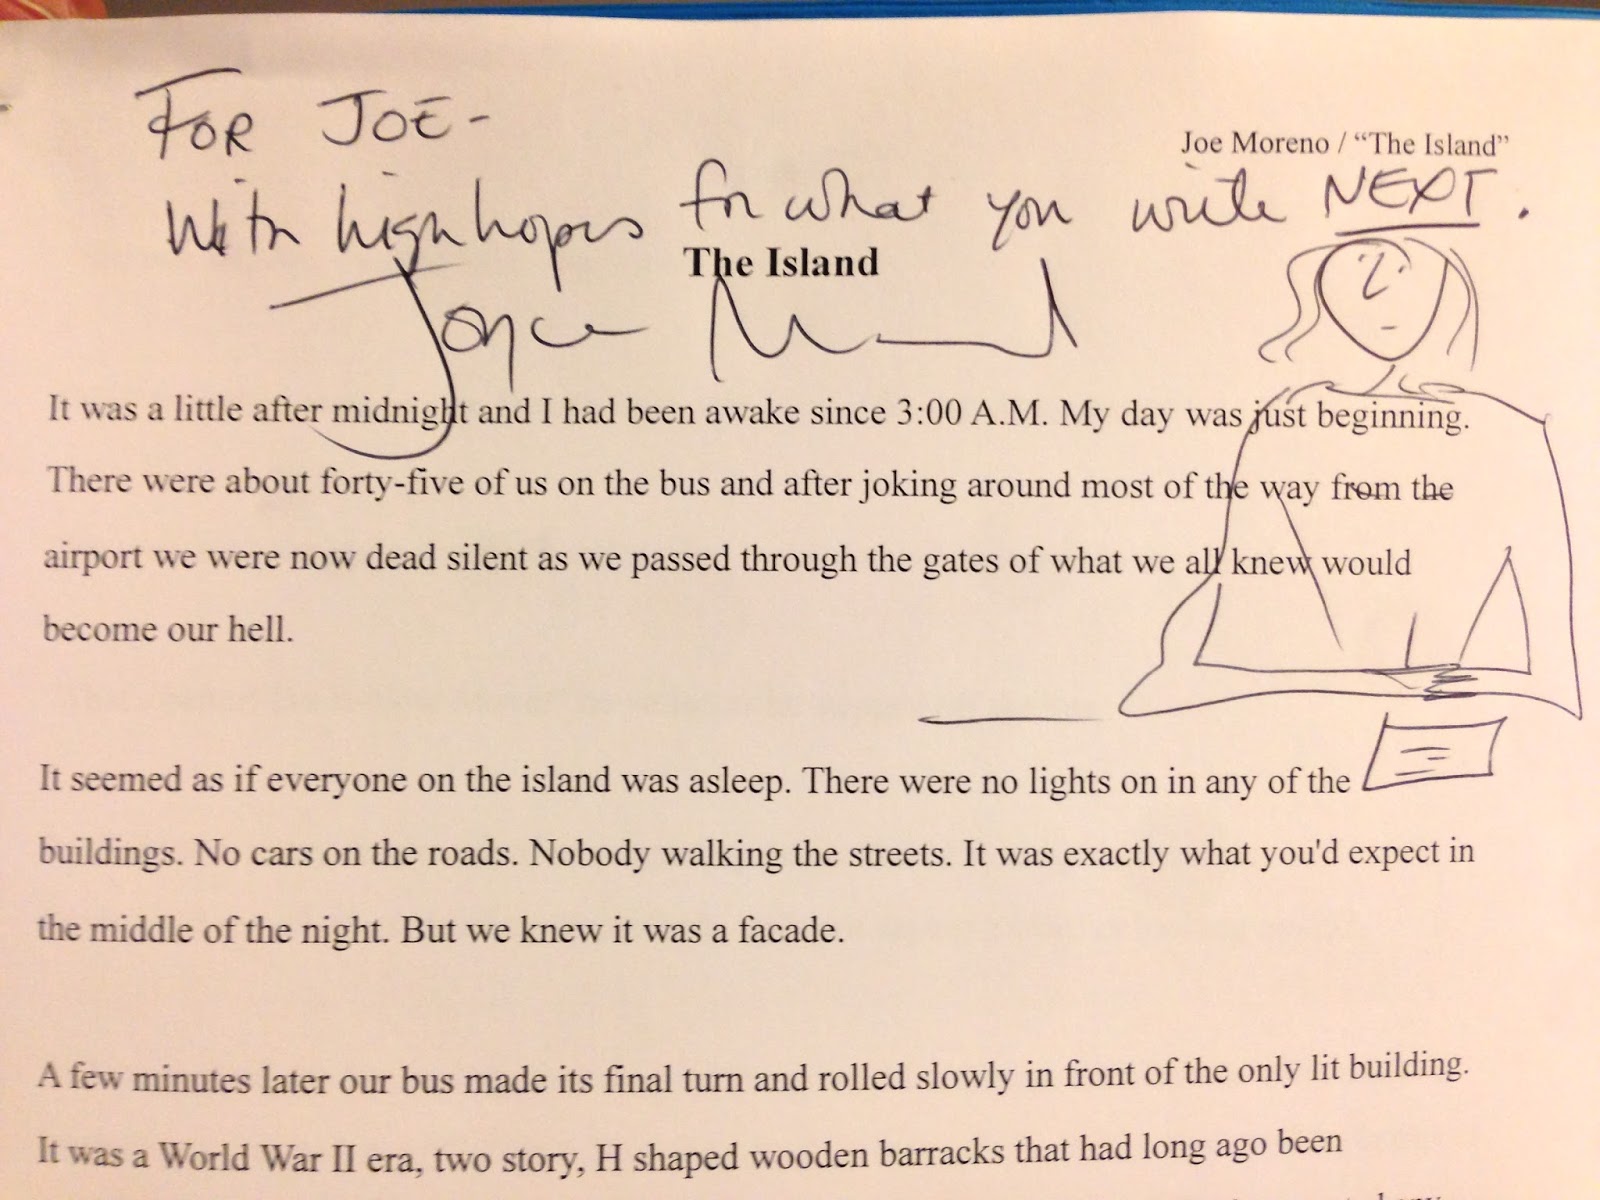 FOR JOE-
Joe Moreno / “The Island”
With high hopes for what you write NEXT.
The Island
Joyce
It was a little after midnight and I had been awake since 3:00 A.M. My day was just beginning.
There were about forty-five of us on the bus and after joking around most of the way from the
airport we were now dead silent as we passed through the gates of what we all knew would
become our hell.
It seemed as if everyone on the island was asleep. There were no lights on in any of the
buildings. No cars on the roads. Nobody walking the streets. It was exactly what you'd expect in
the middle of the night. But we knew it was a facade.
A few minutes later our bus made its final turn and rolled slowly in front of the only lit building.
It was a World War II era, two story, H shaped wooden barracks that had long ago been